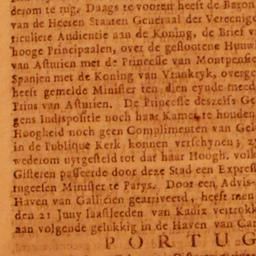 derom te rug. Daags te vooren heeft de Baron
van de Heeren Staaten Generaal der Vereenig
ticuliere Audientie aan de Koning, de Brief v
hooge Principaalen, over de geslootene Huw
van Asturien met de Princesse van Montpensie
Spanjen met de Koning van Vrankryk, overge
heeft gemelde Minister ten dien eynde meed
Prins van Asturien. De Princesse deszelfs Ge
gens Indispositie noch haar Kamer te houden
Hoogheid noch geen Complimenten van Gel
in de Publique Kerk konnen verschynen; z
wederom uytgesteld tot dat haar Hoogh. volk
Gisteren passeerde door deze Stad een Expres
tugeesen Minister te Parys. Door een Advis-
Haven van Gallicien gearriveerd, heeft men
den 21 Juny laastleeden van Kadix vertrokk
aan volgende gelukkig in de Haven van Car
PORTUG